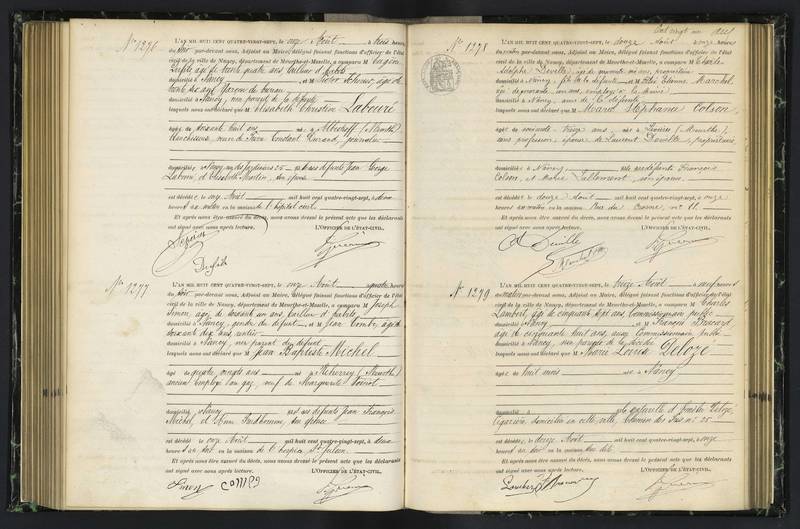 N° 1276
L'AN MIL HUIT CENT QUATRE-VINGT-SEPT, le onze Août à trois heures
du soir par-devant nous, Adjoint au Maire, délégué faisant fonctions d'officier de l'état
civil de la ville de Nancy, département de Meurthe-et-Moselle, a comparu M Eugène
âgé de trente quatre ans
domicilié à Nancy et M Victor Athanase, âgé de
trente six ans, garçon de bureau
domicilié à Nancy, non parent de la défunte
lesquels nous ont déclaré que M Elisabeth Christine Labouré
âgée de soixante huit ans née à Albechoff (Meurthe)
blanchisseuse, veuve de Pierre Constant Durand, journalier
domiciliée à Nancy, 25 fille des défunts Jean George
Labouré, et Elisabeth Martin, son épouse
est décédée le onze Août mil huit cent quatre-vingt-sept, à deux
heures du matin en la maison de l'hôpital civil.
Et après nous être assuré du décès, nous avons dressé le présent acte que les déclarants
ont signé avec nous après lecture. L'OFFICIER DE L'ÉTAT-CIVIL,
N° 1277
L'AN MIL HUIT CENT QUATRE-VINGT-SEPT, le onze Août à quatre heures
du soir par-devant nous, Adjoint au Maire, délégué faisant fonctions d'officier de l'état
civil de la ville de Nancy, département de Meurthe-et-Moselle, a comparu M Joseph
Simon, âgé de soixante un ans, tailleur d'habits
domicilié à Nancy, gendre du défunt et M Jean Combe, âgé de
soixante dix ans, rentier
domicilié à Nancy, non parent du défunt
lesquels nous ont déclaré que M Jean Baptiste Michel
âgé de quatre vingts ans né à (Meurthe)
ancien employé au gaz, veuf de Marguerite
domicilié à Nancy fils des défunts Jean François
Michel, et Anne, son épouse
est décédé le onze Août mil huit cent quatre-vingt-sept, à deux
heures du soir en la maison de l'hospice St Julien.
Et après nous être assuré du décès, nous avons dressé le présent acte que les déclarants
ont signé avec nous après lecture. L'OFFICIER DE L'ÉTAT-CIVIL,
Simon COMBE
N° 1278
L'AN MIL HUIT CENT QUATRE-VINGT-SEPT, le douze Août à onze heures
du matin par-devant nous, Adjoint au Maire, délégué faisant fonctions d'officier de l'état
civil de la ville de Nancy, département de Meurthe-et-Moselle, a comparu M Charles
Adolphe Deville, âgé de quarante ans, propriétaire
domicilié à Nancy, fils de la défunte et M Félix Etienne Marchal,
âgé de quarante un ans, employé à la mairie
domicilié à Nancy, ami de la défunte
lesquels nous ont déclaré que M Marie Stéphanie Colson,
âgée de soixante treize ans, née à (Meurthe)
sans profession, épouse de Laurent Deville, propriétaire
domiciliée à Nancy fille des défunts François
Colson, et Marie Lallement, son épouse.
est décédée le douze Août mil huit cent quatre-vingt-sept, à onze
heures du matin en la maison Rue des n° 11.
Et après nous être assuré du décès, nous avons dressé le présent acte que les déclarants
ont signé avec nous après lecture. L'OFFICIER DE L'ÉTAT-CIVIL,
A Deville
N° 1279
L'AN MIL HUIT CENT QUATRE-VINGT-SEPT, le treize Août à neuf heures
du matin par-devant nous, Adjoint au Maire, délégué faisant fonctions d'officier de l'état
civil de la ville de Nancy, département de Meurthe-et-Moselle, a comparu M Charles
Lambert, âgé de cinquante sept ans, commissionnaire public
domicilié à Nancy et M François
âgé de cinquante huit ans, aussi commissionnaire public
domicilié à Nancy, non parent de la décédée
lesquels nous ont déclaré que M Marie Louise Deloze
âgée de huit mois née à Nancy
domiciliée à fille naturelle d' Deloze,
cigarière, domiciliée en cette ville, n° 25
est décédée le douze Août mil huit cent quatre-vingt-sept, à onze
heures du soir en la maison
Et après nous être assuré du décès, nous avons dressé le présent acte que les déclarants
ont signé avec nous après lecture. L'OFFICIER DE L'ÉTAT-CIVIL,
Lambert